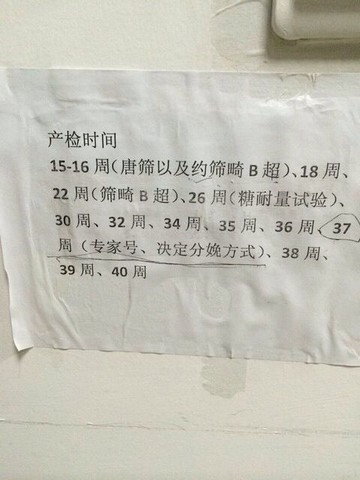 产检时间
15-16 周（唐筛以及约筛畸 B 超）、18 周、
22 周（筛畸 B 超）、26 周（糖耐量试验）、
30 周、32 周、34 周、35 周、36 周、37
周（专家号、决定分娩方式）、38 周、
39 周、40 周